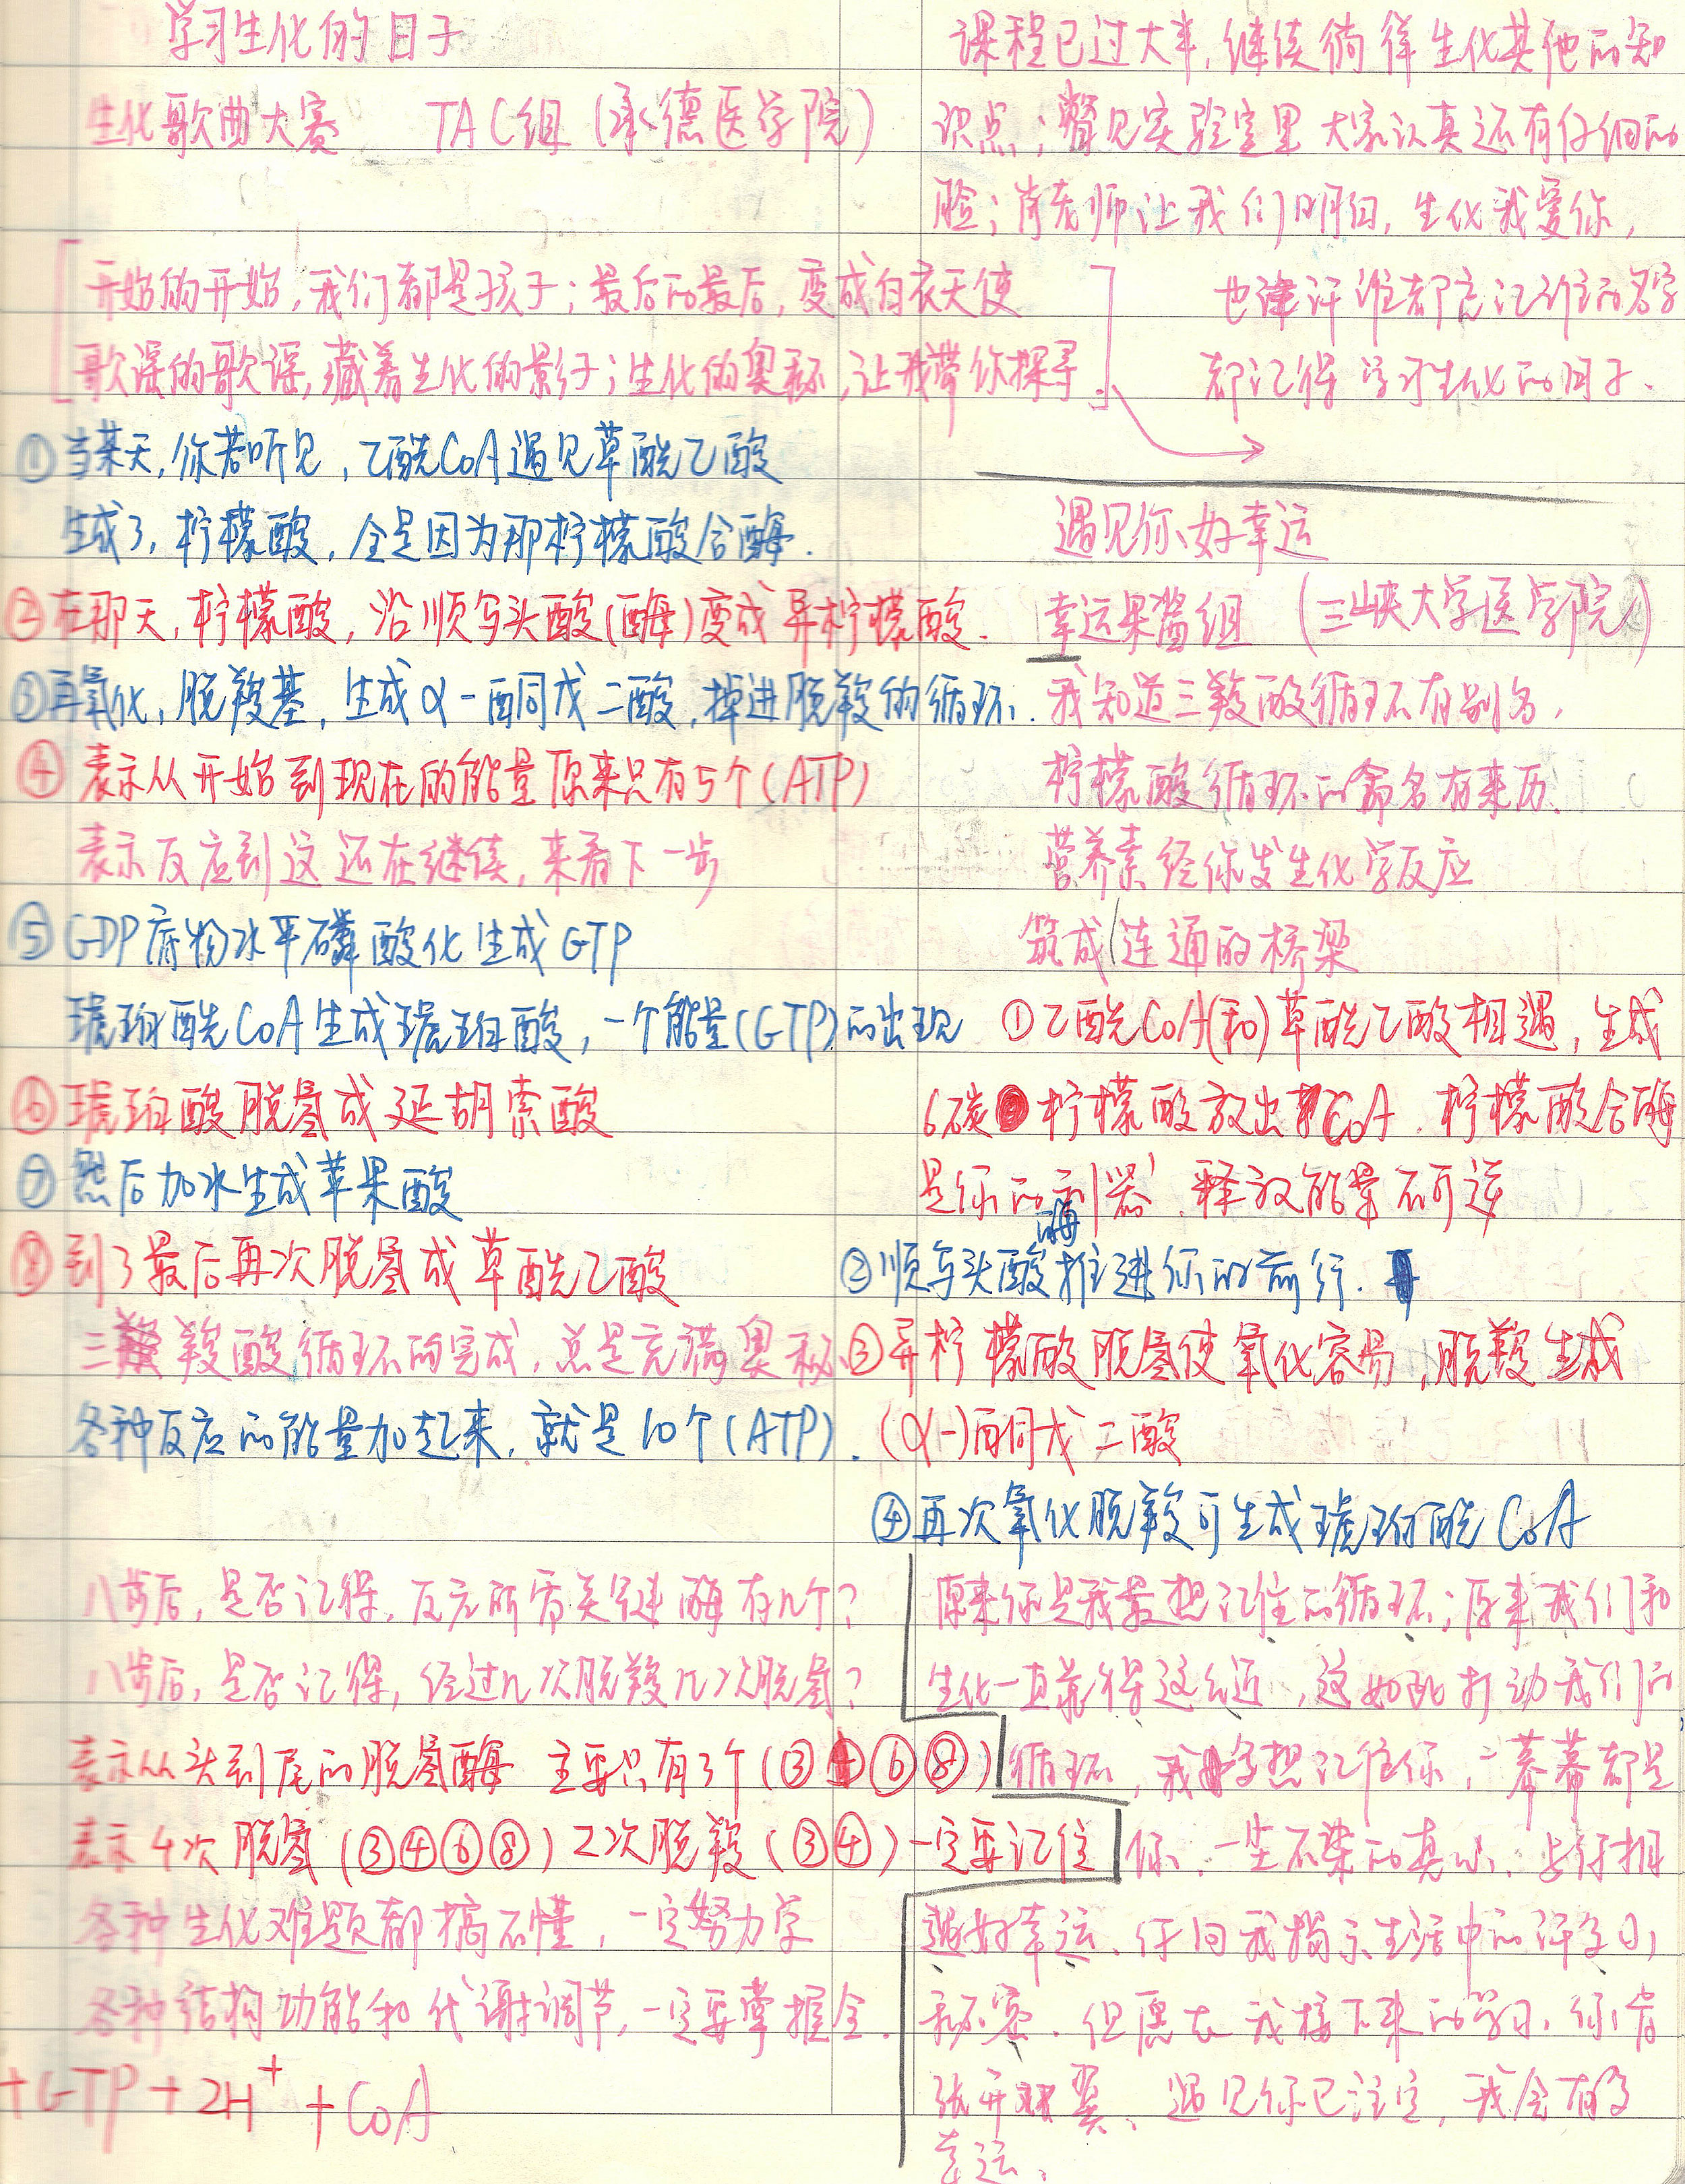 学习生化的日子
生化歌曲大赛 TAC组(承德医学院)
开始的开始,我们都是孩子;最后的最后,变成白衣天使
歌谣的歌谣,藏着生化的影子;生化的奥秘,让我带你探寻.
①当某天,你若听见,乙酰CoA遇见草酰乙酸
生成了,柠檬酸,全是因为那柠檬酸合酶.
②在那天,柠檬酸,沿顺乌头酸(酶)变成异柠檬酸.
③再氧化,脱羧基,生成α-酮戊二酸,掉进脱羧的循环.
④表示从开始到现在的能量原来只有5个(ATP)
表示反应到这还在继续,来看下一步
⑤GDP底物水平磷酸化生成GTP
琥珀酰CoA生成琥珀酸,一个能量(GTP)的出现
⑥琥珀酸脱氢成延胡索酸
⑦然后加水生成苹果酸
⑧到了最后再次脱氢成草酰乙酸
三羧酸循环的完成,总是充满奥秘
各种反应的能量加起来,就是10个(ATP).
八步后,是否记得,反应所需关键酶有几个?
八步后,是否记得,经过几次脱羧几次脱氢?
表示从头到尾的脱氢酶 主要只有3个(③⑥⑧)
表示4次脱氢(③④⑥⑧)2次脱羧(③④)一定要记住
各种生化难题都搞不懂,一定努力学
各种结构功能和代谢调节,一定要掌握全.
+GTP+2H⁺+CoA
课程已过大半,继续徜徉生化其他的知
识点;瞥见实验室里大家认真还有仔细的
脸;老师让我们明白,生化我爱你,
也许谁都忘记谁的名字
都记得学习生化的日子.
遇见你、好幸运
幸运果酱组(三峡大学医学院)
我知道三羧酸循环有别名,
柠檬酸循环的命名有来历.
营养素经你发生化学反应
筑成连通的桥梁
①乙酰CoA(和)草酰乙酸相遇,生成
6碳柠檬酸放出CoA.柠檬酸合酶
是你的利器,释放能量不可逆
②顺乌头酸酶推进你的前行.
③异柠檬酸脱氢使氧化容易,脱羧生成
(α-)酮戊二酸
④再次氧化脱羧可生成琥珀酰CoA
原来你是我最想记住的循环;原来我们和
生化一直靠得这么近,这如此打动我们的
循环,我好想记住你,一幕幕都是
你.一尘不染的真心.与你相
遇好幸运.你向我揭示生活中的许多
秘密.但愿在我接下来的学习,你
张开双翼、遇见你已注定,我会有多
幸运.